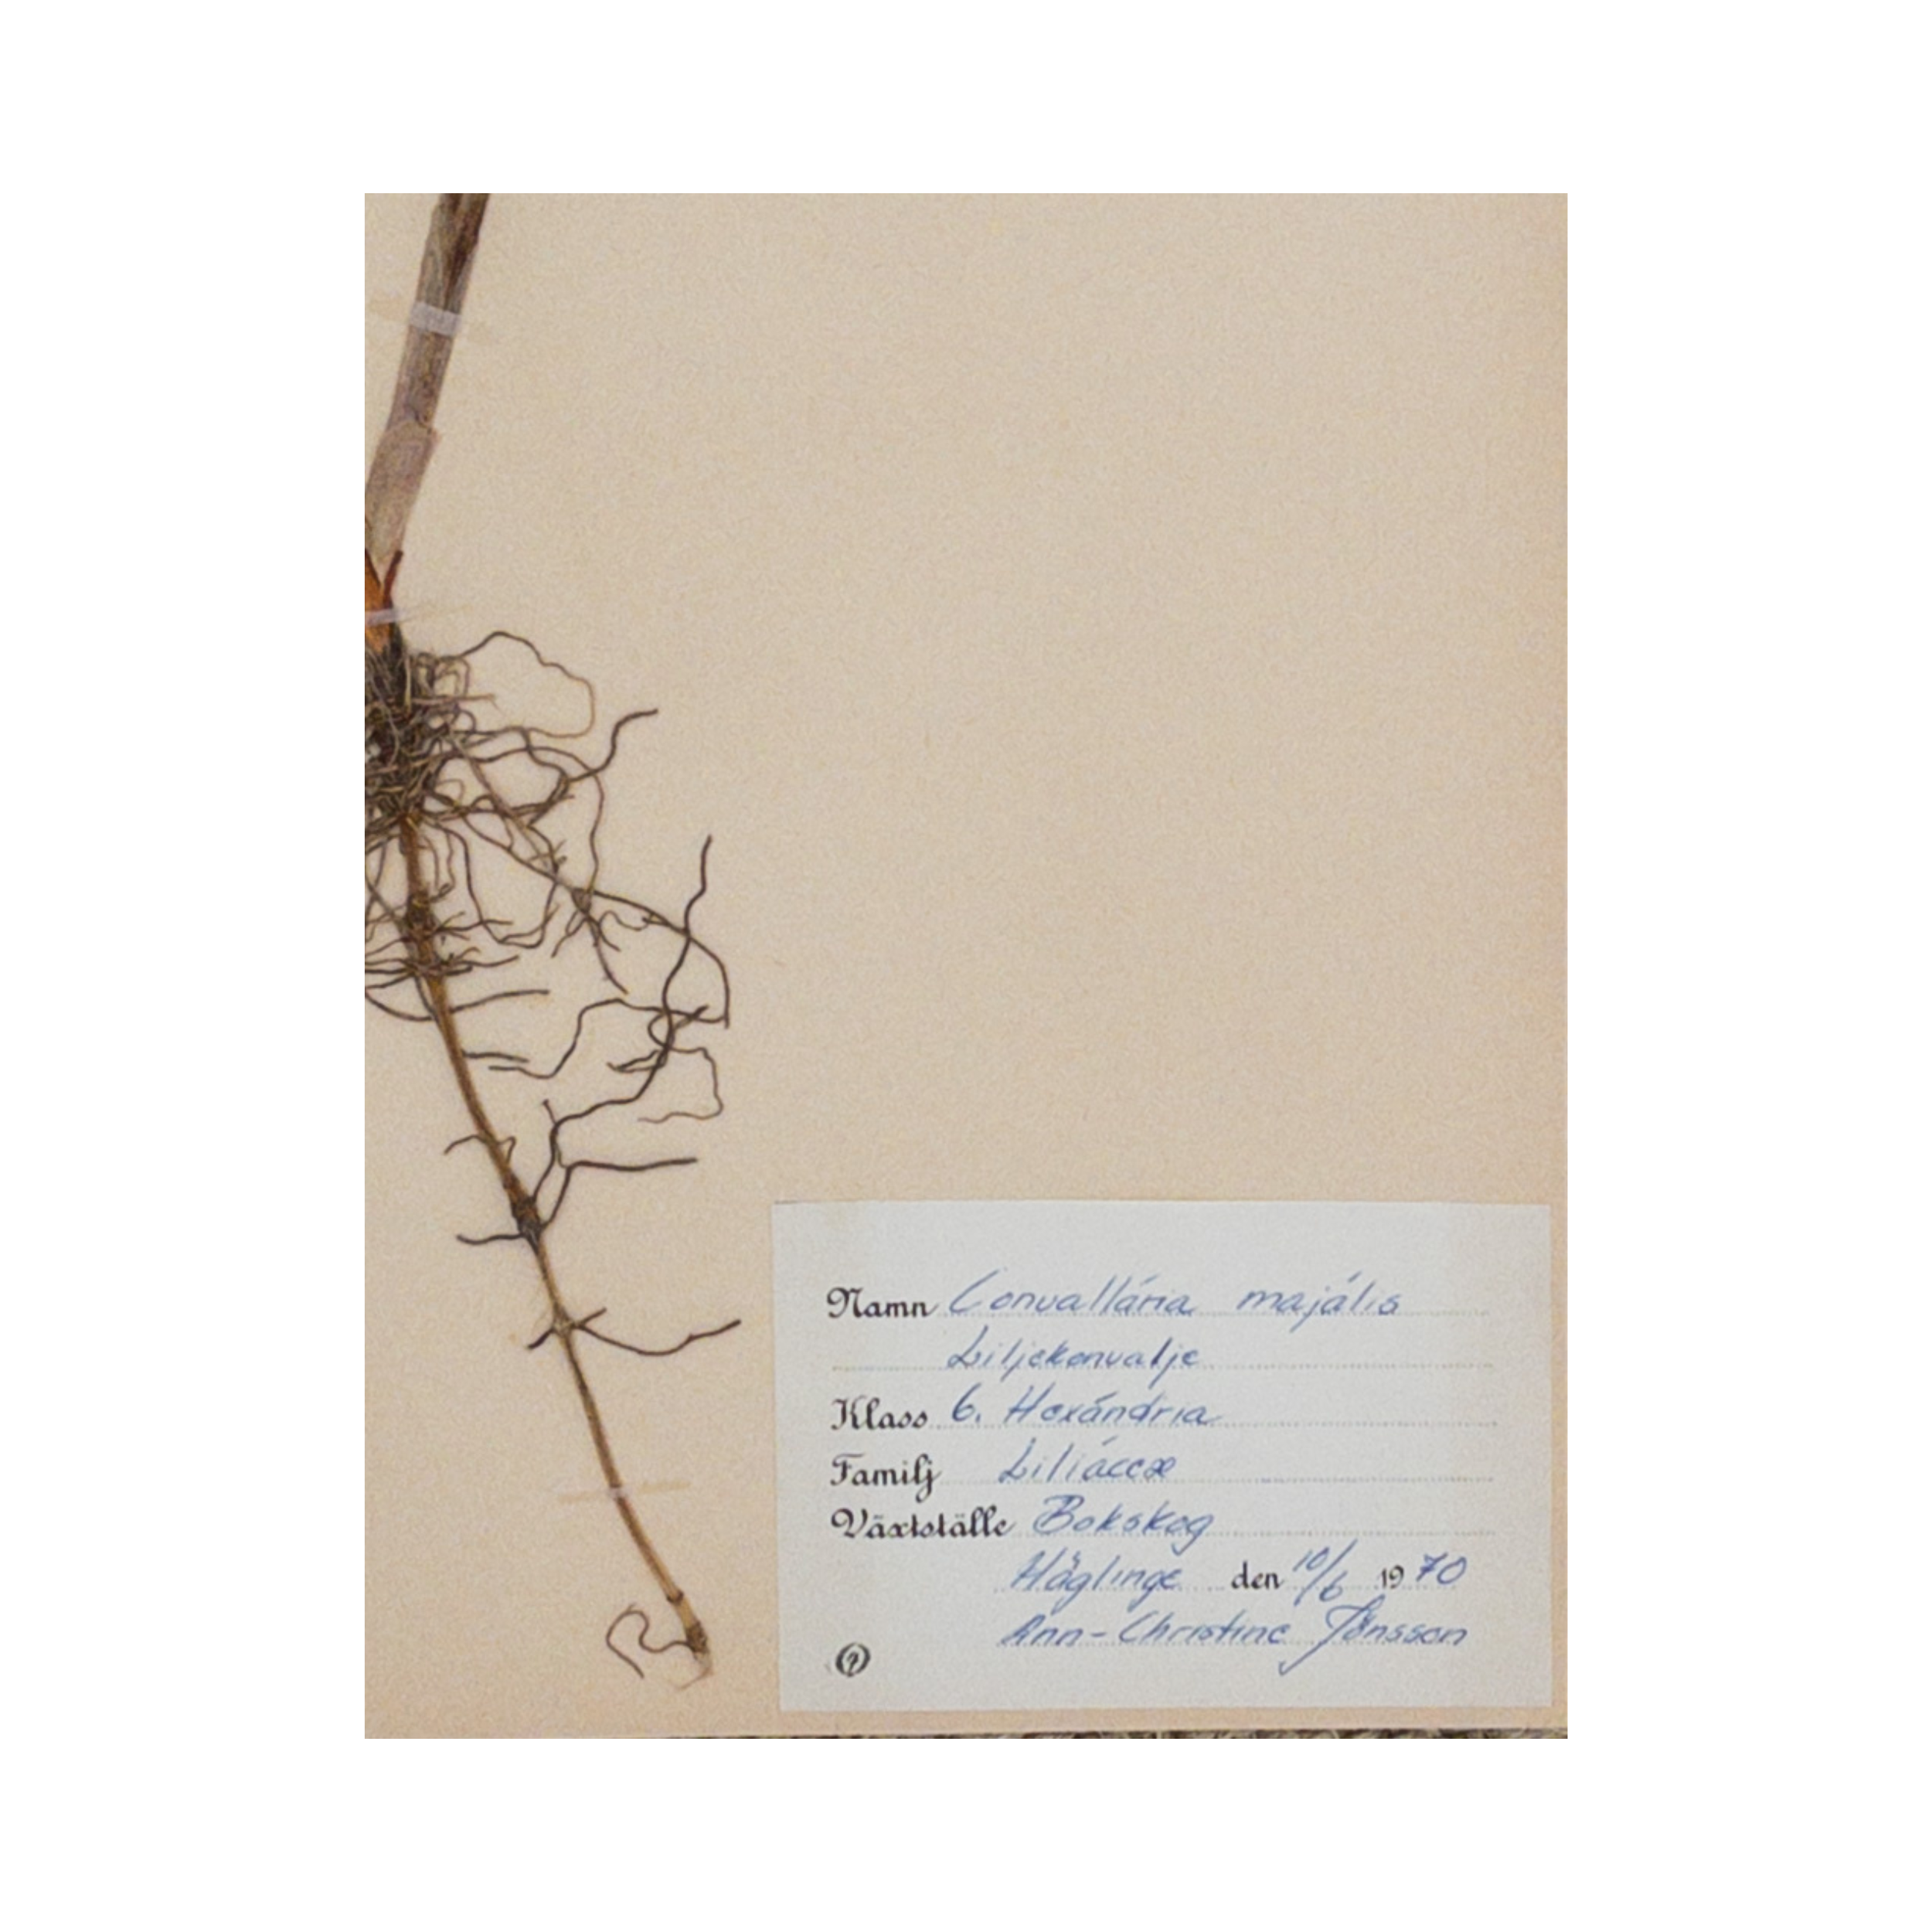 Namn Convallária majális
Liljekonvalje
Klass 6. Hexándria
Familj Liliáceæ
Växtställe Bokskog
Häglinge den 10/6 1970
Ann-Christine Jönsson